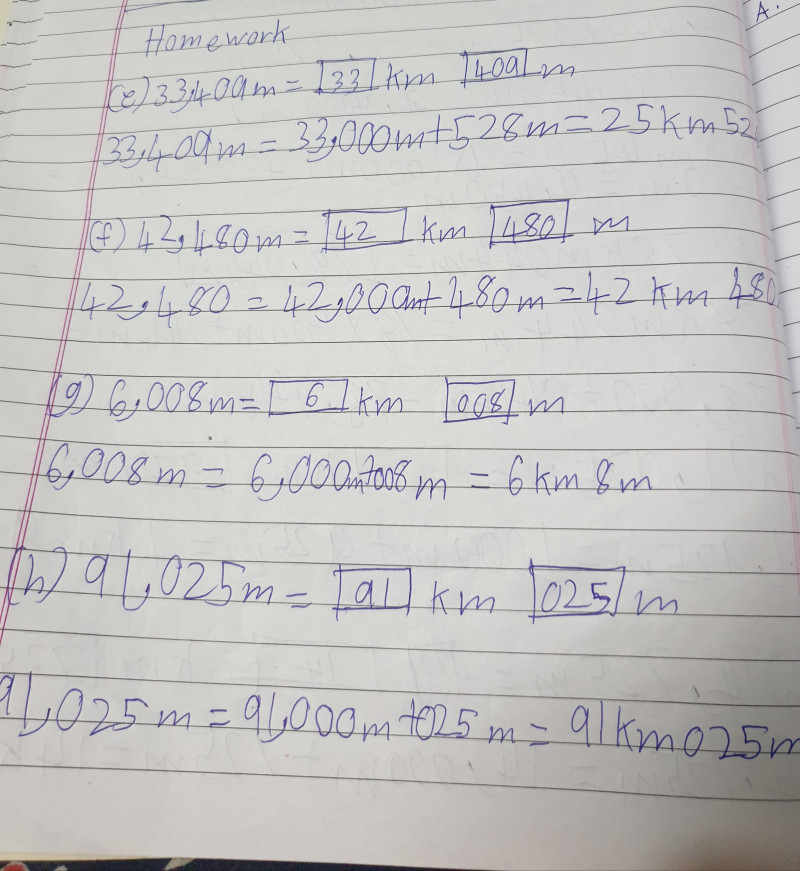 A.
Homework
(e) 33,409m = 33 km 409 m
33,409m = 33,000m + 528m = 25km 52
(f) 42,480m = 42 km 480 m
42,480 = 42,000m + 480m = 42 km 480
(g) 6,008m = 6 km 008 m
6,008m = 6,000m + 008m = 6km 8m
(h) 91,025m = 91 km 025 m
91,025m = 91,000m + 025m = 91km 025m